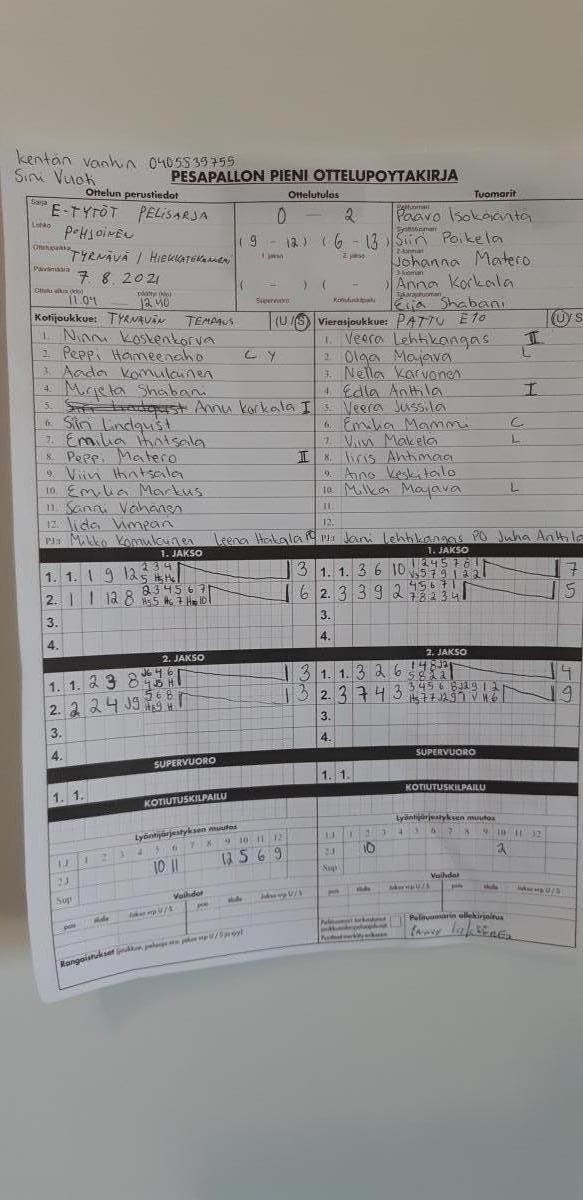 kentän vanhin 0405539755
Sini Vuoti
PESAPALLON PIENI OTTELUPOYTAKIRJA
Ottelun perustiedot Ottelutulos Tuomarit
Sarja E-TYTÖT PELISARJA 0 – 2 Pelituomari Paavo Isokääntä
Lohko POHJOINEN (9 – 12) (6 – 13) Syöttötuomari Siiri Poikela
1. jakso 2. jakso
Ottelupaikka TYRNÄVÄ / HIEKKATEKONURMI 2-tuomari Johanna Matero
Päivämäärä 7.8.2021 ( – ) ( – ) 3-tuomari Anna Korkala
Ottelu alkoi (klo) päättyi (klo) Supervuoro Kotiutuskilpailu Takarajatuomari
11.04 12.40 Eija Shabani
Kotijoukkue: TYRNÄVÄN TEMPAUS (U/S) Vierasjoukkue: PATTU E10 (U/S
1. Ninni Koskenkorva 1. Veera Lehtikangas II
2. Peppi Hämeenaho C Y 2. Olga Majava L
3. Aada Komulainen 3. Nella Karvonen
4. Mirjeta Shabani 4. Edla Anttila I
5. Siiri Lindqvist Annu Korkala I 5. Veera Jussila
6. Siiri Lindquist 6. Emilia Mammi C
7. Emilia Hintsala 7. Viivi Mäkelä L
8. Peppi Matero II 8. Iiris Ahtimaa
9. Viivi Hintsala 9. Aino Keskitalo
10. Emilia Markus 10. Milka Majava L
11. Sanni Vähänen 11.
12. Iida Vimpari 12.
PJ:t Mikko Komulainen Leena Hakala PO PJ:t Jani Lehtikangas PO Juha Anttila
1. JAKSO 1. JAKSO
1. 1. 1 9 12 3 1. 1. 3 6 10 7
2. 1 1 12 8 6 2. 3 3 9 2 5
3. 3.
4. 4.
2. JAKSO 2. JAKSO
1. 1. 2 3 8 3 1. 1. 3 2 6 4
2. 2 2 4 J9 3 2. 3 7 4 3 9
3. 3.
4. 4.
SUPERVUORO SUPERVUORO
1. 1. 1. 1.
KOTIUTUSKILPAILU KOTIUTUSKILPAILU
Lyöntijärjestyksen muutos Lyöntijärjestyksen muutos
1.J 1 2 3 4 5 6 7 8 9 10 11 12 1.J 1 2 3 4 5 6 7 8 9 10 11 12
2.J 10 11 12 5 6 9 2.J 10 2
Sup Sup
Vaihdot Vaihdot
pois tilalle Jakso vrp U / S pois tilalle Jakso vrp U / S pois tilalle Jakso vrp U / S pois tilalle Jakso vrp U / S
Pelituomarin allekirjoitus
Rangaistukset (joukkue, pelaaja nro, jakso vrp U / S ja syy)